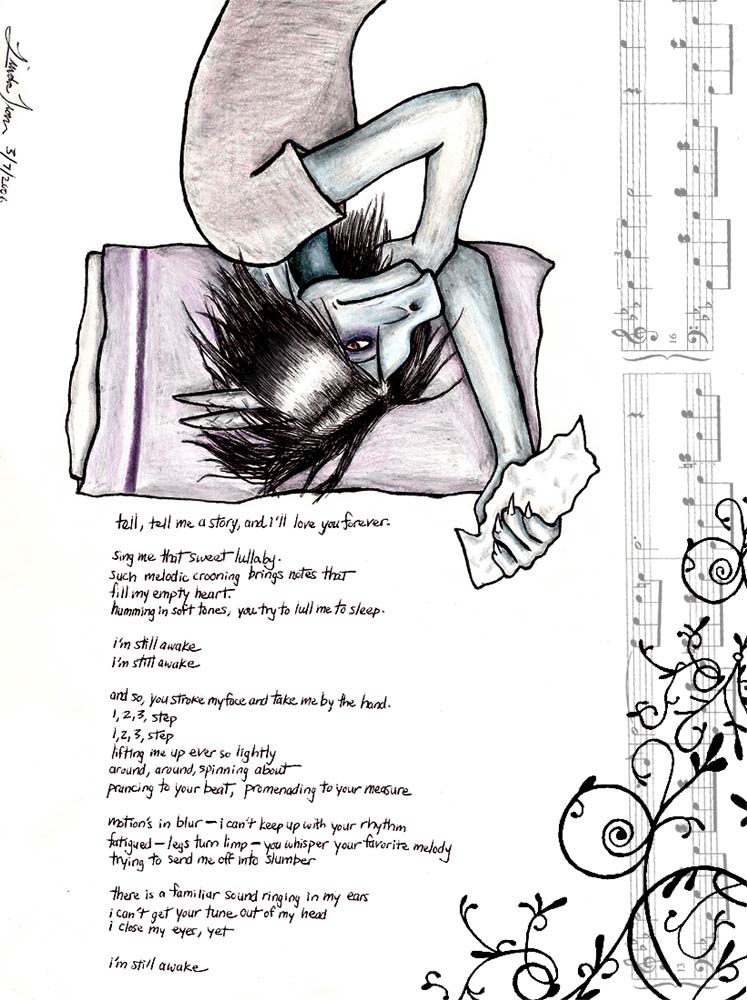 3/7/2006
tell, tell me a story, and I'll love you forever.
sing me that sweet lullaby.
such melodic crooning brings notes that
fill my empty heart.
humming in soft tones, you try to lull me to sleep.
i'm still awake
i'm still awake
and so, you stroke my face and take me by the hand.
1, 2, 3, step
1, 2, 3, step
lifting me up ever so lightly
around, around, spinning about
prancing to your beat, promenading to your measure
motion's in blur – i can't keep up with your rhythm
fatigued – legs turn limp – you whisper your favorite melody
trying to send me off into slumber
there is a familiar sound ringing in my ears
i can't get your tune out of my head
i close my eyes, yet
i'm still awake
16
13
3